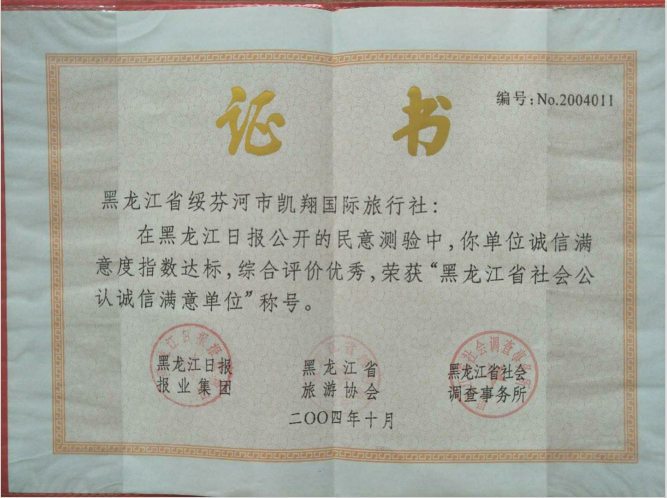 证 书
编号:No.2004011
黑龙江省绥芬河市凯翔国际旅行社:
在黑龙江日报公开的民意测验中,你单位诚信满
意度指数达标,综合评价优秀,荣获“黑龙江省社会公
认诚信满意单位”称号。
黑龙江日报
报业集团
黑龙江省
旅游协会
黑龙江省社会
调查事务所
二〇〇四年十月